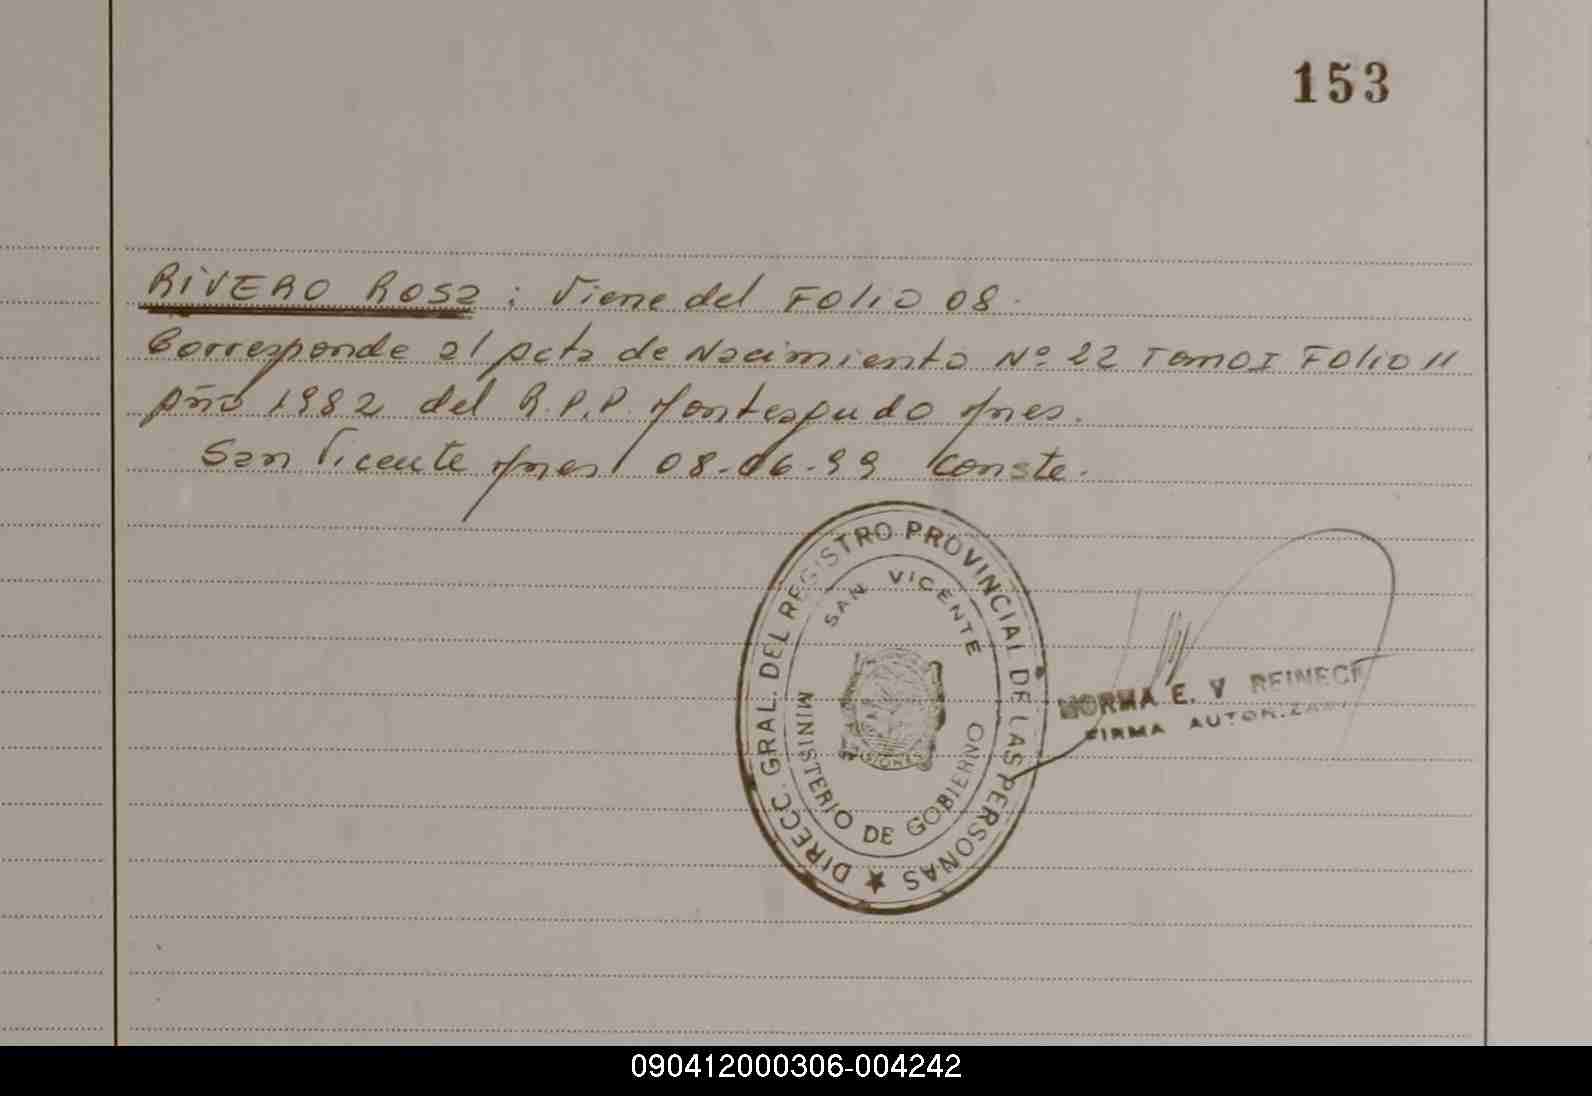 153
RIVERO ROSA : Viene del FOLIO 08.
Corresponde al Acta de Nacimiento Nº 22 TOMO I FOLIO 11
Año 1982 del R.P.P. Monteagudo Mnes.
San Vicente Mnes 08-06-99 Conste.
DIRECC. GRAL. DEL REGISTRO PROVINCIAL DE LAS PERSONAS
SAN VICENTE
MINISTERIO DE GOBIERNO
MISIONES
NORMA E. V REINECK
FIRMA AUTORIZADA
090412000306-004242